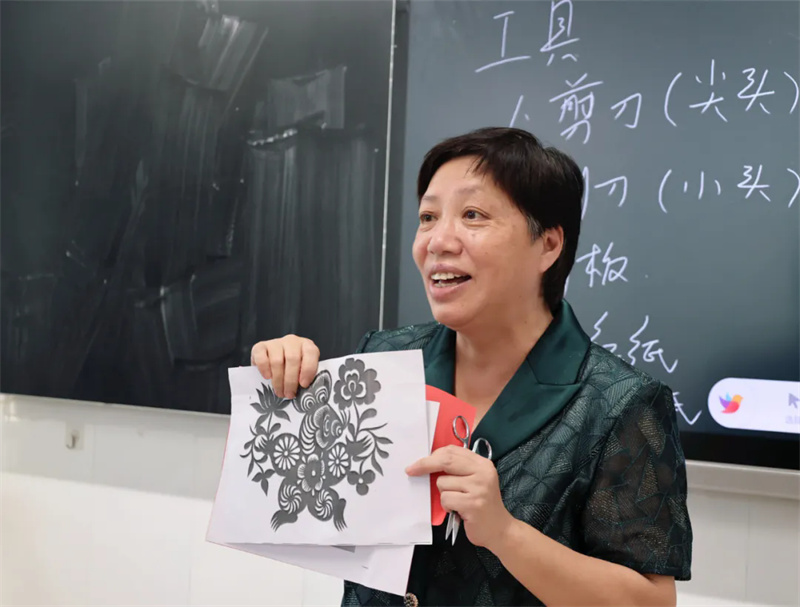 工具
1、剪刀(尖头)
刀(小头)
板.
纸